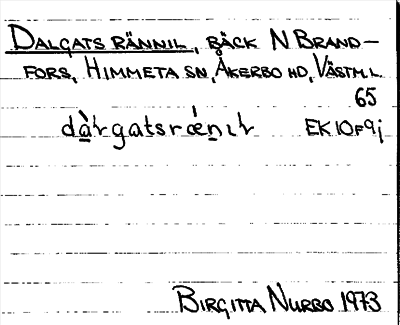 DALGATS RÄNNIL, BÄCK N BRAND-
FORS, HIMMETA SN, ÅKERBO HD, VÄSTM L
65
EK10F9j
BIRGITTA NURBO 1973